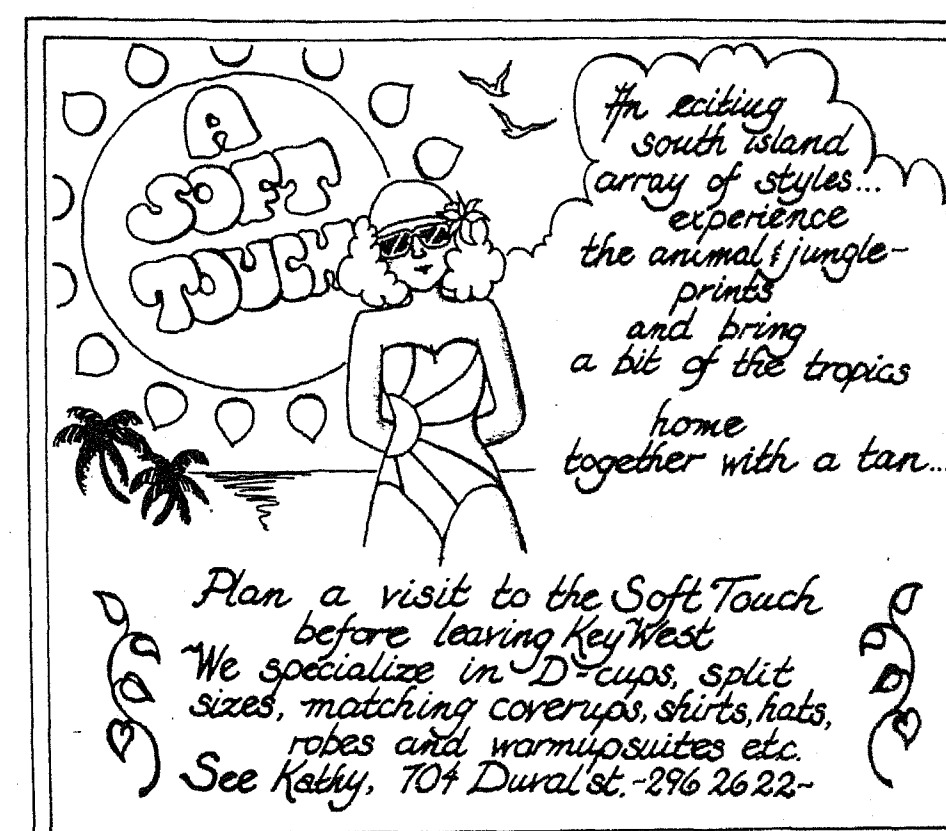 A
SOFT
TOUCH
An eciting
south island
array of styles...
experience
the animal & jungle-
prints
and bring
a bit of the tropics
home
together with a tan...
Plan a visit to the Soft Touch
before leaving Key West
We specialize in D-cups, split
sizes, matching coverups, shirts, hats,
robes and warmupsuites etc.
See Kathy, 704 Duval st. -296 2622-